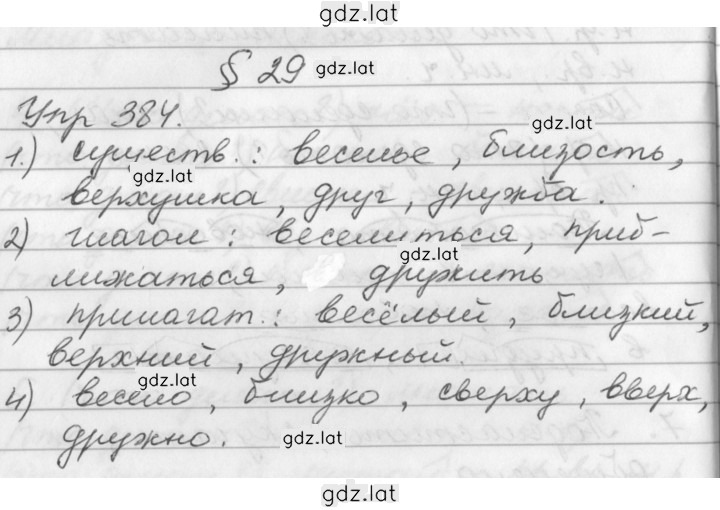 gdz.lat
§ 29 gdz.lat
Упр 384.
gdz.lat
1.) существ.: веселье, близость,
gdz.lat
верхушка, друг, дружба.
2) глагол: веселиться, приб-
gdz.lat
лижаться, дружить
3) прилагат.: весёлый, близкий,
верхний, дружный.
gdz.lat
4) весело, близко, сверху, вверх,
дружно. gdz.lat
gdz.lat